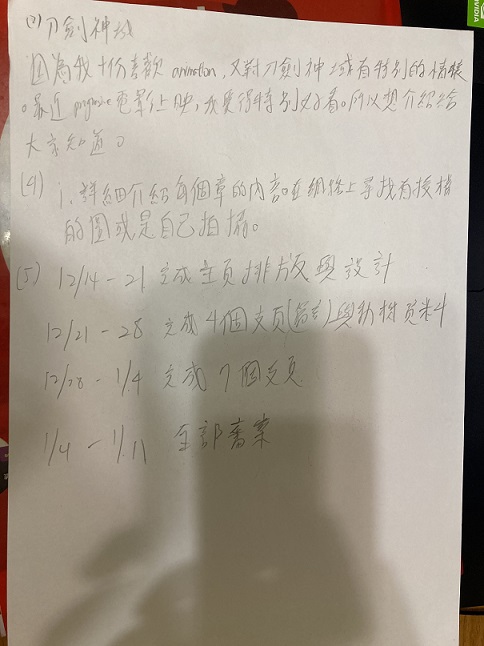 NVIDIA
(1) 刀劍神域
因為我十份喜歡 animation, 又對刀劍神域有特別的情懷
。最近 progressive 電影上映, 我覺得特別好看。所以想介紹給
大家知道。
(4) i. 詳細介紹每個章的內容。在網絡上尋找有授權
的圖或是自己拍攝。
(5) 12/14 - 21 完成主頁排版與設計
12/21 - 28 完成 4個支頁 與 資料
12/28 - 1/4 完成 7個支頁
1/4 - 1/11 全部